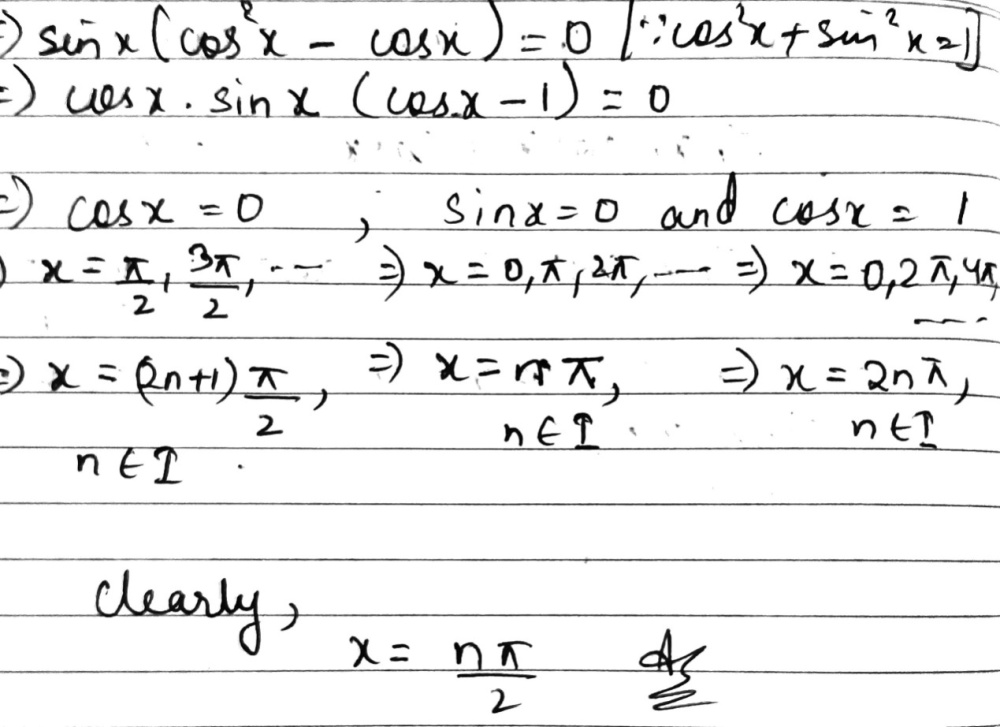 ⇒) sin x (cos²x − cos x) = 0 [∵ cos²x + sin²x = 1]
⇒) cos x . sin x (cos x − 1) = 0
⇒) cos x = 0 , sin x = 0 and cos x = 1
) x = π/2, 3π/2, ---- ⇒) x = 0, π, 2π, ---- ⇒) x = 0, 2π, 4π, ----
⇒) x = (2n+1) π/2, ⇒) x = nπ, ⇒) x = 2nπ,
n ∈ I n ∈ I n ∈ I
Clearly,
x = nπ/2 As